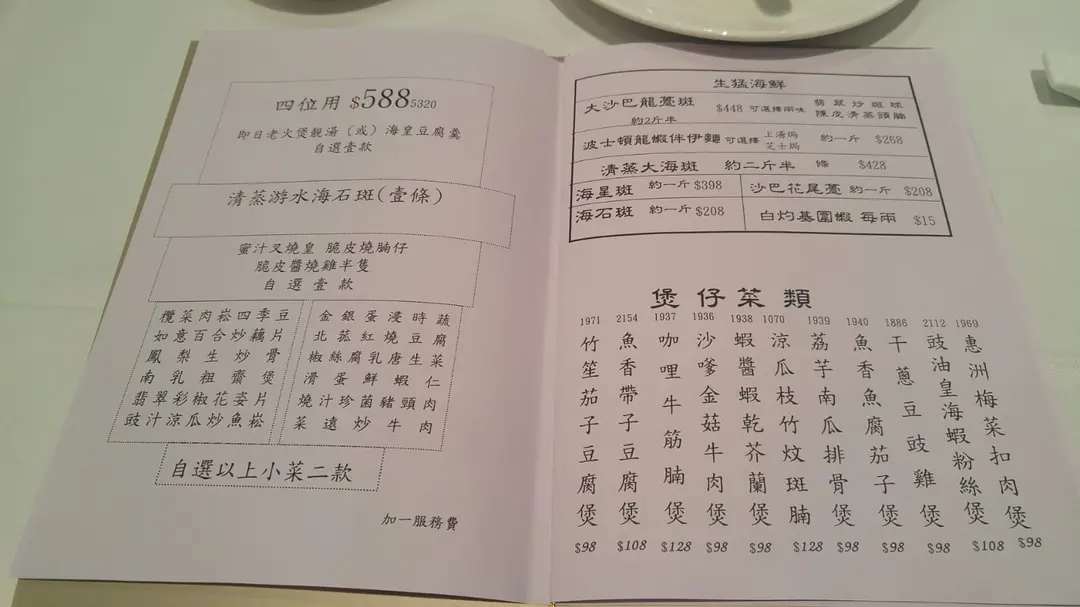 四位用 $588 5320
即日老火煲靚湯（或）海皇豆腐羹
自選壹款
清蒸游水海石斑(壹條)
蜜汁叉燒皇 脆皮燒腩仔
脆皮醬燒雞半隻
自選壹款
欖菜肉崧四季豆
如意百合炒藕片
鳳梨生炒骨
南乳粗齋煲
翡翠彩椒花姿片
豉汁涼瓜炒魚崧
金銀蛋浸時蔬
北菰紅燒豆腐
椒絲腐乳唐生菜
滑蛋鮮蝦仁
燒汁珍菌豬頸肉
菜遠炒牛肉
自選以上小菜二款
加一服務費
生猛海鮮
大沙巴龍躉斑 約2斤半 $448 可選擇兩味 翡翠炒斑球 陳皮清蒸頭腩
波士頓龍蝦伴伊麵 可選擇 上湯焗 芝士焗 約一斤 $268
清蒸大海斑 約二斤半 條 $428
海星斑 約一斤 $398
沙巴花尾躉 約一斤 $208
海石斑 約一斤 $208
白灼基圍蝦 每兩 $15
煲仔菜類
1971 竹笙茄子豆腐煲 $98
2154 魚香帶子豆腐煲 $108
1937 咖哩牛筋腩煲 $128
1936 沙嗲金菇牛肉煲 $98
1938 蝦醬蝦乾芥蘭煲 $98
1070 涼瓜枝竹炆斑腩 $128
1939 荔芋南瓜排骨煲 $98
1940 魚香魚腐茄子煲 $98
1886 干蔥豆豉雞煲 $98
2112 豉油皇海蝦粉絲煲 $108
1969 惠洲梅菜扣肉煲 $98